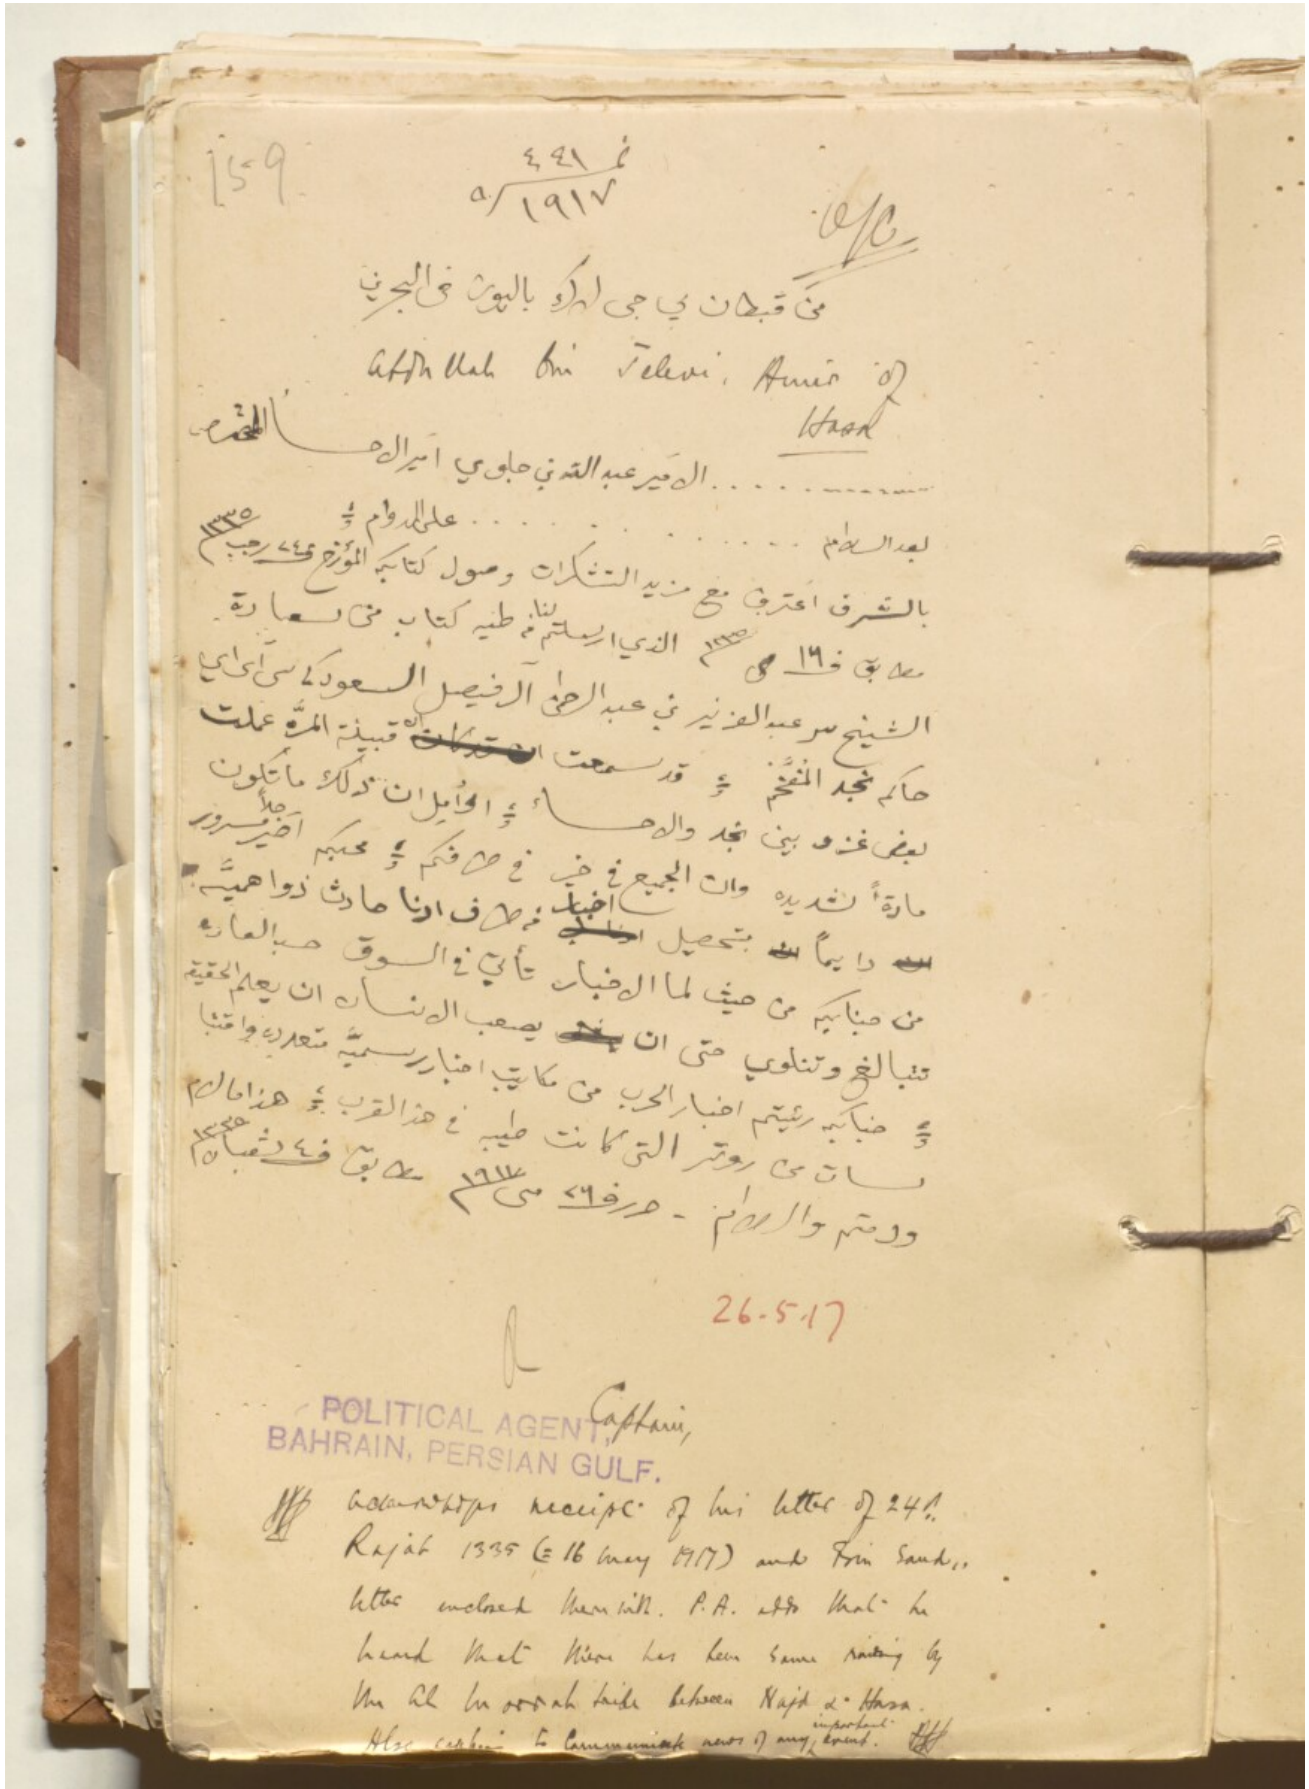 159
نمـ ٤٤١
٥/ ١٩١٧
O/C
من قبطان بي جي لاك باليوز في البحرين
Abdullah bin Jelevi, Amir of
Hasa
الامير عبد الله بن جلوي امير الاحسا المحترم
بعد السلام . . . . . . على الدوام
بالشرف اعترف مع مزيد التشكرات وصول كتابكم المؤرخ في ٢٤ رجب ١٣٣٥
مطابق ف ١٦ مي الذي ارسلتم لنا في طيه كتاب من سعادة
الشيخ سر عبد العزيز بن عبد الرحمن آل فيصل السعود كي سي آي اي
حاكم نجد المفخم قد سمعت ان قبيلة المرّه عملت
بعض غزو بين نجد والاحساء المأمل ان ذلك ما تكون
مادةً شديده وان الجميع في خير في طرفكم محبكم اخير جداً مسرور
دايماً بتحصيل اخبار في طرف ادنا حادث ذو اهميّه
من جنابكم من حيث لما الاخبار تأتي في السوق حسب العاده
تتبالغ وتناوي حتى ان يصعب الانسان ان يعلم الحقيقه
جنابكم رئيتم اخبار الحرب من مكاتيب اخبار رسميّه متعدده واقتبا
سات من روتر التي كانت طيبه في هذا القرب هذا ما لزم
ودمتم والسلام - حرر في ٢٦ مي ١٩١٧ مطابق ف ٤ شعبان ١٣٣٥
26.5.17
Captain,
POLITICAL AGENT,
BAHRAIN, PERSIAN GULF.
Acknowledges receipt of his letter of 24th
Rajab 1335 (= 16 May 1917) and Bin Saud's
letter enclosed therewith. P.A. adds that he
heard that there has been some raiding by
the Al Morrah tribe between Najd & Hasa.
Also to communicate news of any important event.